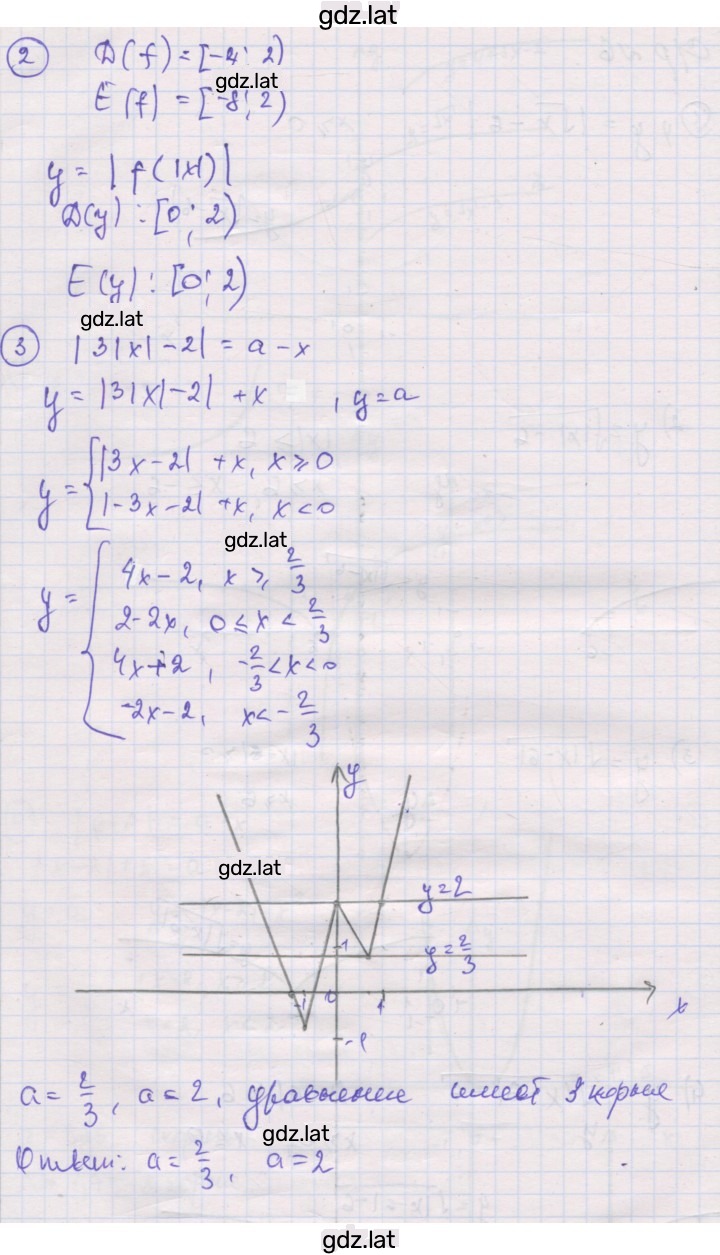 gdz.lat
2 D(f) = [-4; 2)
gdz.lat
E(f) = [-8; 2)
y = |f(|x|)|
D(y): [0; 2)
E(y): [0; 2)
gdz.lat
3 |3|x|-2| = a-x
y = |3|x|-2| +x , y=a
y = { |3x-2| +x, x⩾0
|-3x-2| +x, x<0
gdz.lat
y = { 4x-2, x ⩾ 2/3
2-2x, 0 ≤ x < 2/3
4x+2, -2/3 < x < 0
-2x-2, x < -2/3
y
gdz.lat
y=2
1
y=2/3
-1 1 x
-1
a = 2/3, a = 2, уравнение имеет 3 корня
gdz.lat
Ответ: a = 2/3, a = 2
gdz.lat